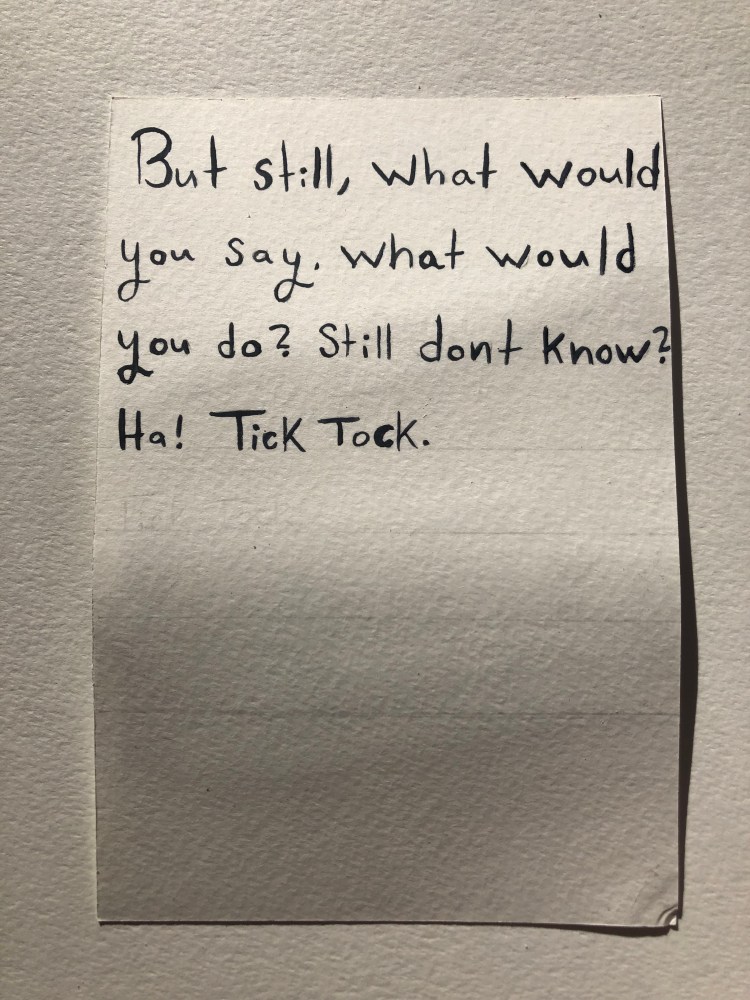 But still, what would
you say, what would
you do? Still dont know?
Ha! Tick Tock.